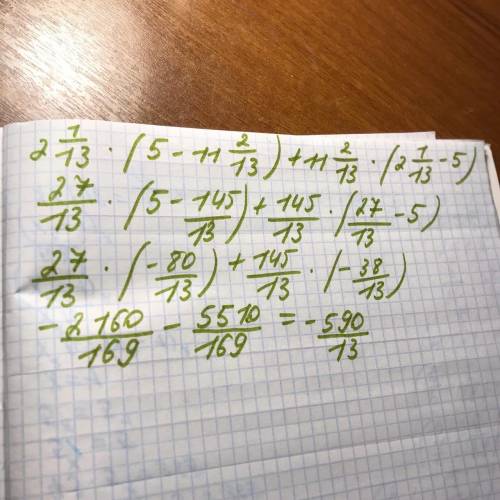 2 1/13 · (5 - 11 2/13) + 11 2/13 · (2 1/13 - 5)
27/13 · (5 - 145/13) + 145/13 · (27/13 - 5)
27/13 · (-80/13) + 145/13 · (-38/13)
- 2160/169 - 5510/169 = - 590/13